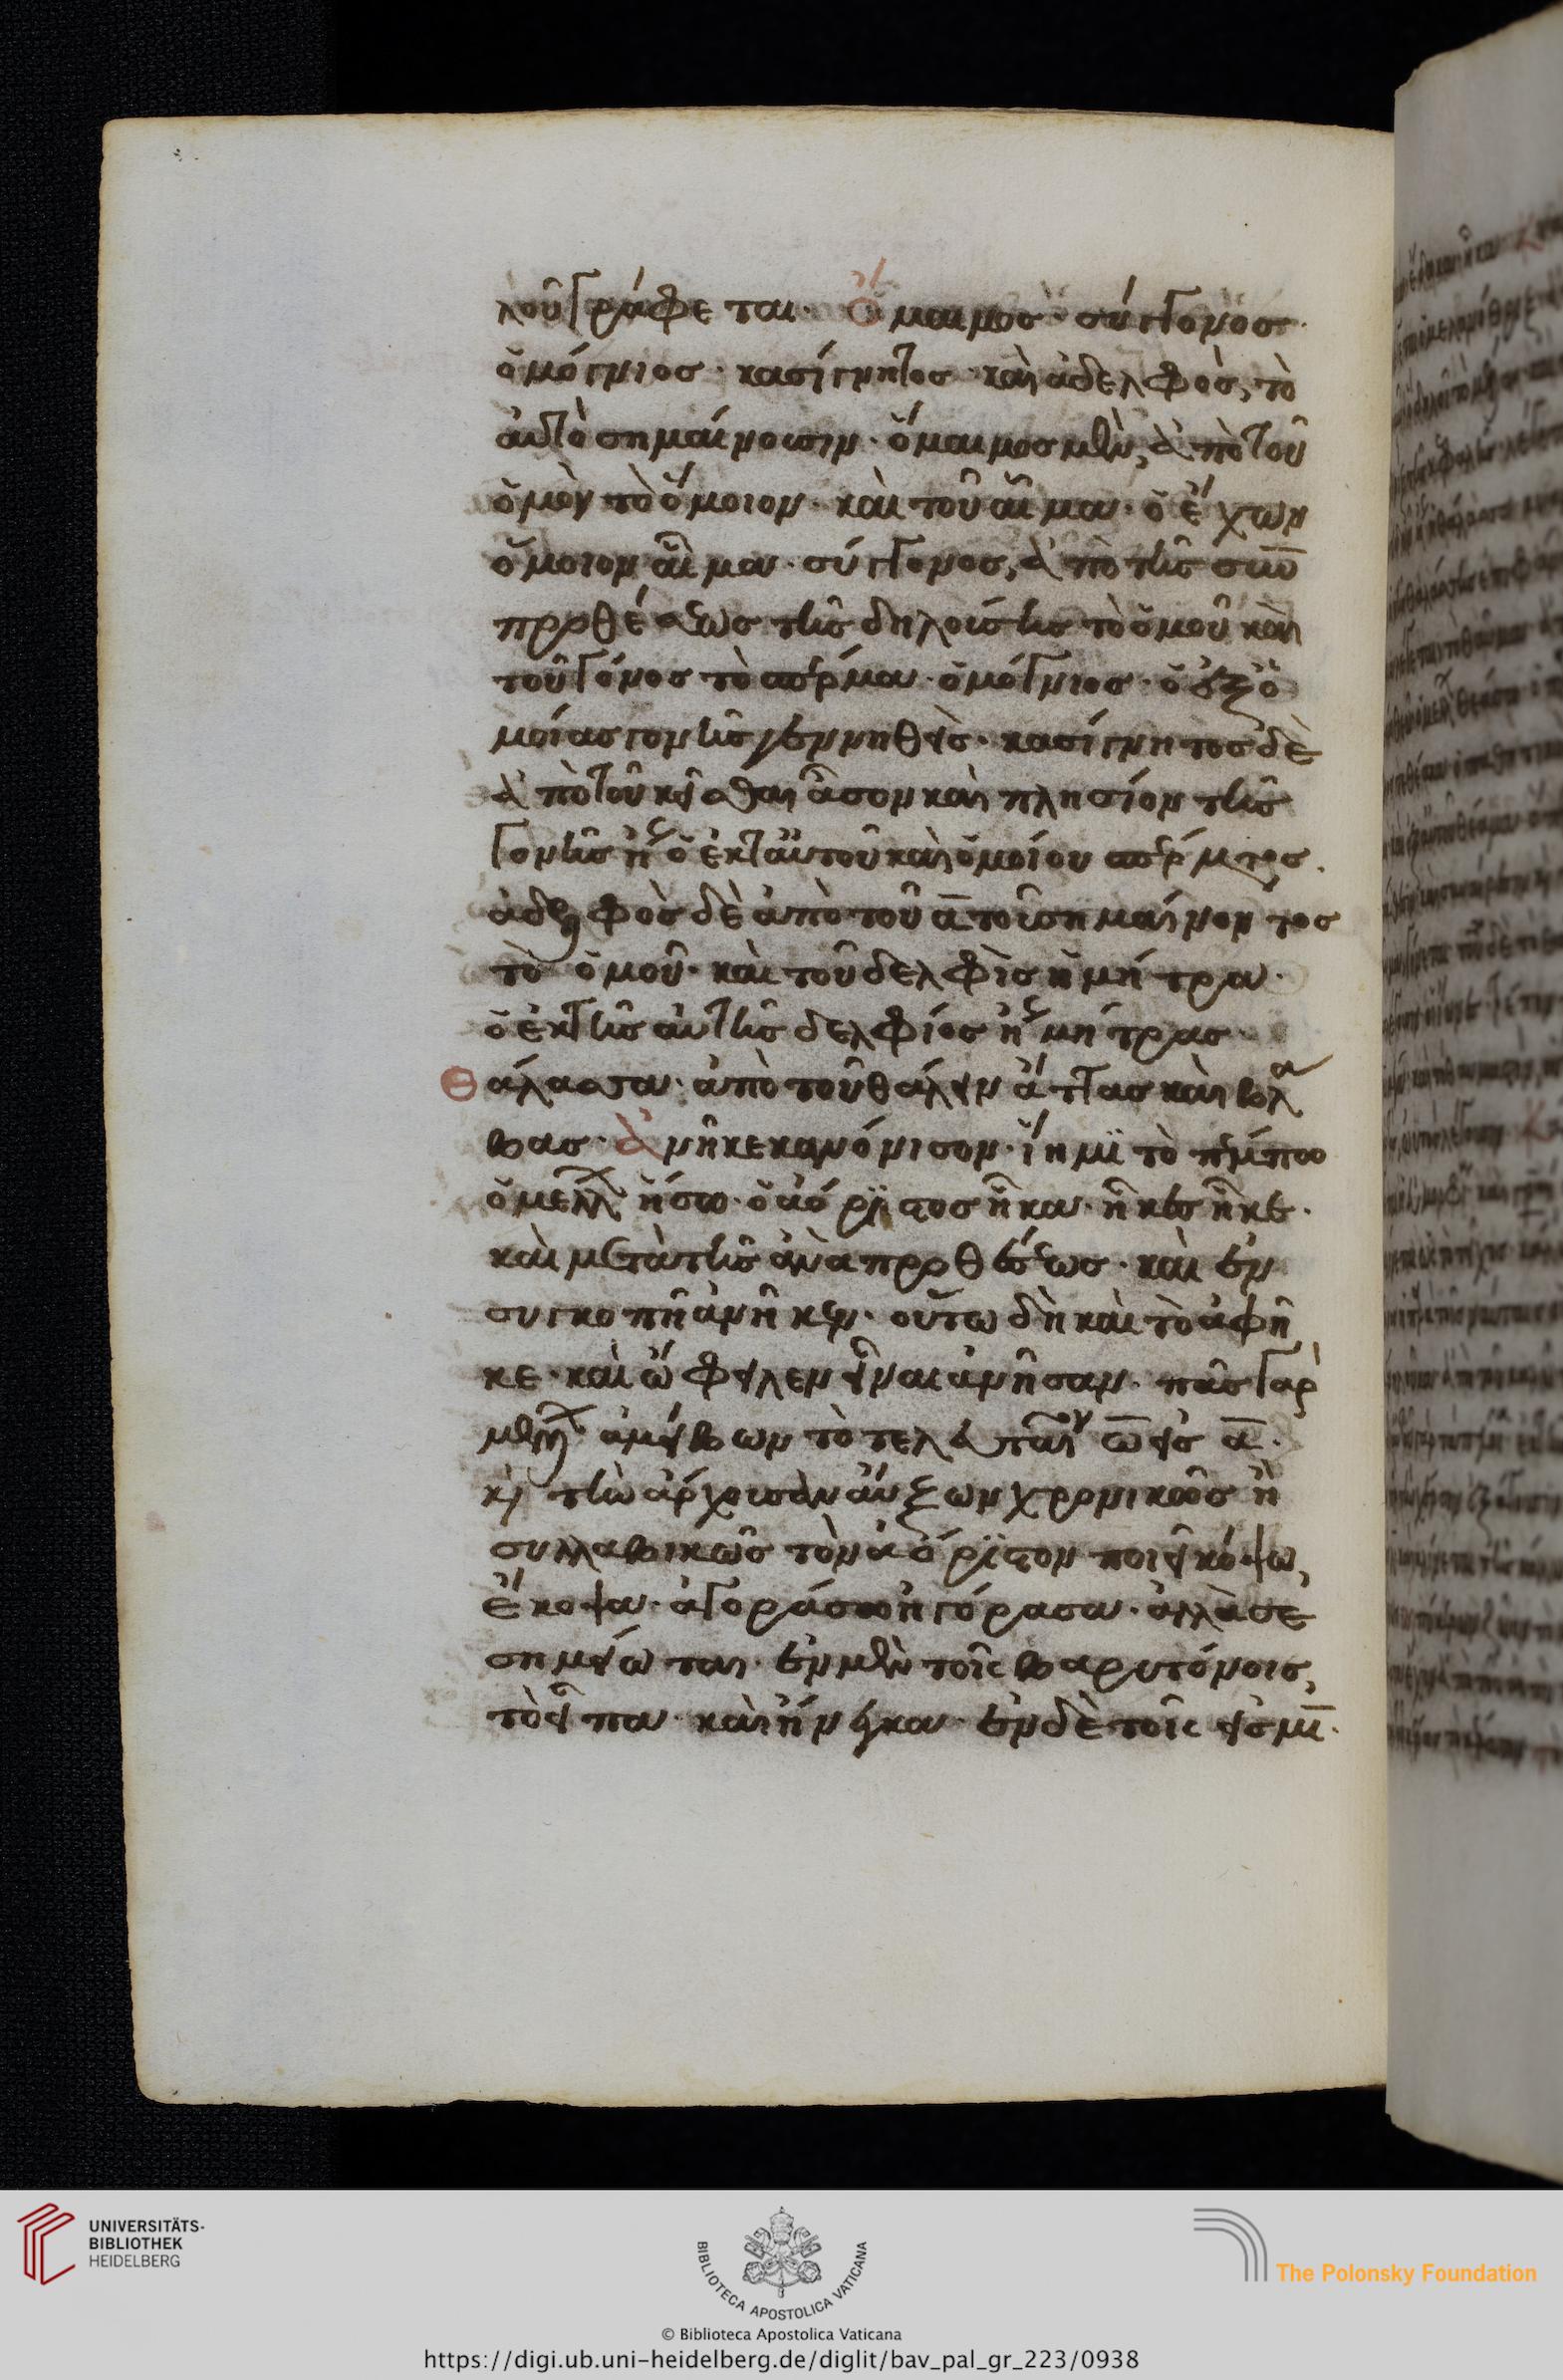 λοῦ γράφεται. Ὅμαιμος· σύγγονος·
ὁμόγνιος· κασίγνητος· καὶ ἀδελφὸς, τὸ
αὐτὸ σημαίνουσιν· ὅμαιμος μὲν, ἀπὸ τοῦ
ὁμὸν τὸ ὅμοιον· καὶ τοῦ αἷμα· ὁ ἔχων
ὅμοιον αἷμα· σύγγονος, ἀπὸ τῆς σὺν
προθέσεως τῆς δηλούσης τὸ ὁμοῦ καὶ
τοῦ γόνος τὸ σπέρμα· ὁμόγνιος· ὁ ἐξ ὁ
μοίας γονῆς γεννηθείς· κασίγνητος δὲ
ἀπὸ τοῦ κεῖσθαι ἆσον καὶ πλησίον τῆς
γονῆς ἤ ὁ ἐκ ταυτοῦ καὶ ὁμοίου σπέρματος.
ἀδελφὸς δὲ ἀπὸ τοῦ α τοῦ σημαίνοντος
τὸ ὁμοῦ· καὶ τοῦ δελφὶς ἡ μήτρα·
ὁ ἐκ τῆς αὐτῆς δελφίος ἤ μήτρας·
Θάλασσα· ἀπὸ τοῦ θάλειν ἄτας καὶ βλα
βας· ἀνῆκε κανόνισον· ἵημι τὸ πέμπω
ὁ μέλλ ἥσω· ὁ ἀόριστος ἧκα· ἧκες ἧκε·
καὶ μετὰ τῆς ἀνὰ προθέσεως· καὶ ἐν
συγκοπῇ ἀνῆκεν· οὕτω δὴ καὶ τὸ ἀφῆ
κε· καὶ ὤφειλεν εἶναι ἀνῆσαν· πᾶς γὰρ
μελλ ἀμείβων τὸ τελευταῖον ω εἰς α·
κὶ τὴν ἄρχουσαν αὔξων χρονικῶς ἢ
συλλαβικῶς τὸν ἀόριστον ποιεῖ κόψω,
ἔκοψα· ἀγοράσω ἠγόρασα· ἀλλὰ σε
σημείωται· ἐν μὲν τοῖς βαρυτόνοις,
τὸ εἶπα· καὶ ἤνεγκα· ἐν δὲ τοῖς εἰς μι·
UNIVERSITÄTS-
BIBLIOTHEK
HEIDELBERG
BIBLIOTECA APOSTOLICA VATICANA
The Polonsky Foundation
© Biblioteca Apostolica Vaticana
https://digi.ub.uni-heidelberg.de/diglit/bav_pal_gr_223/0938